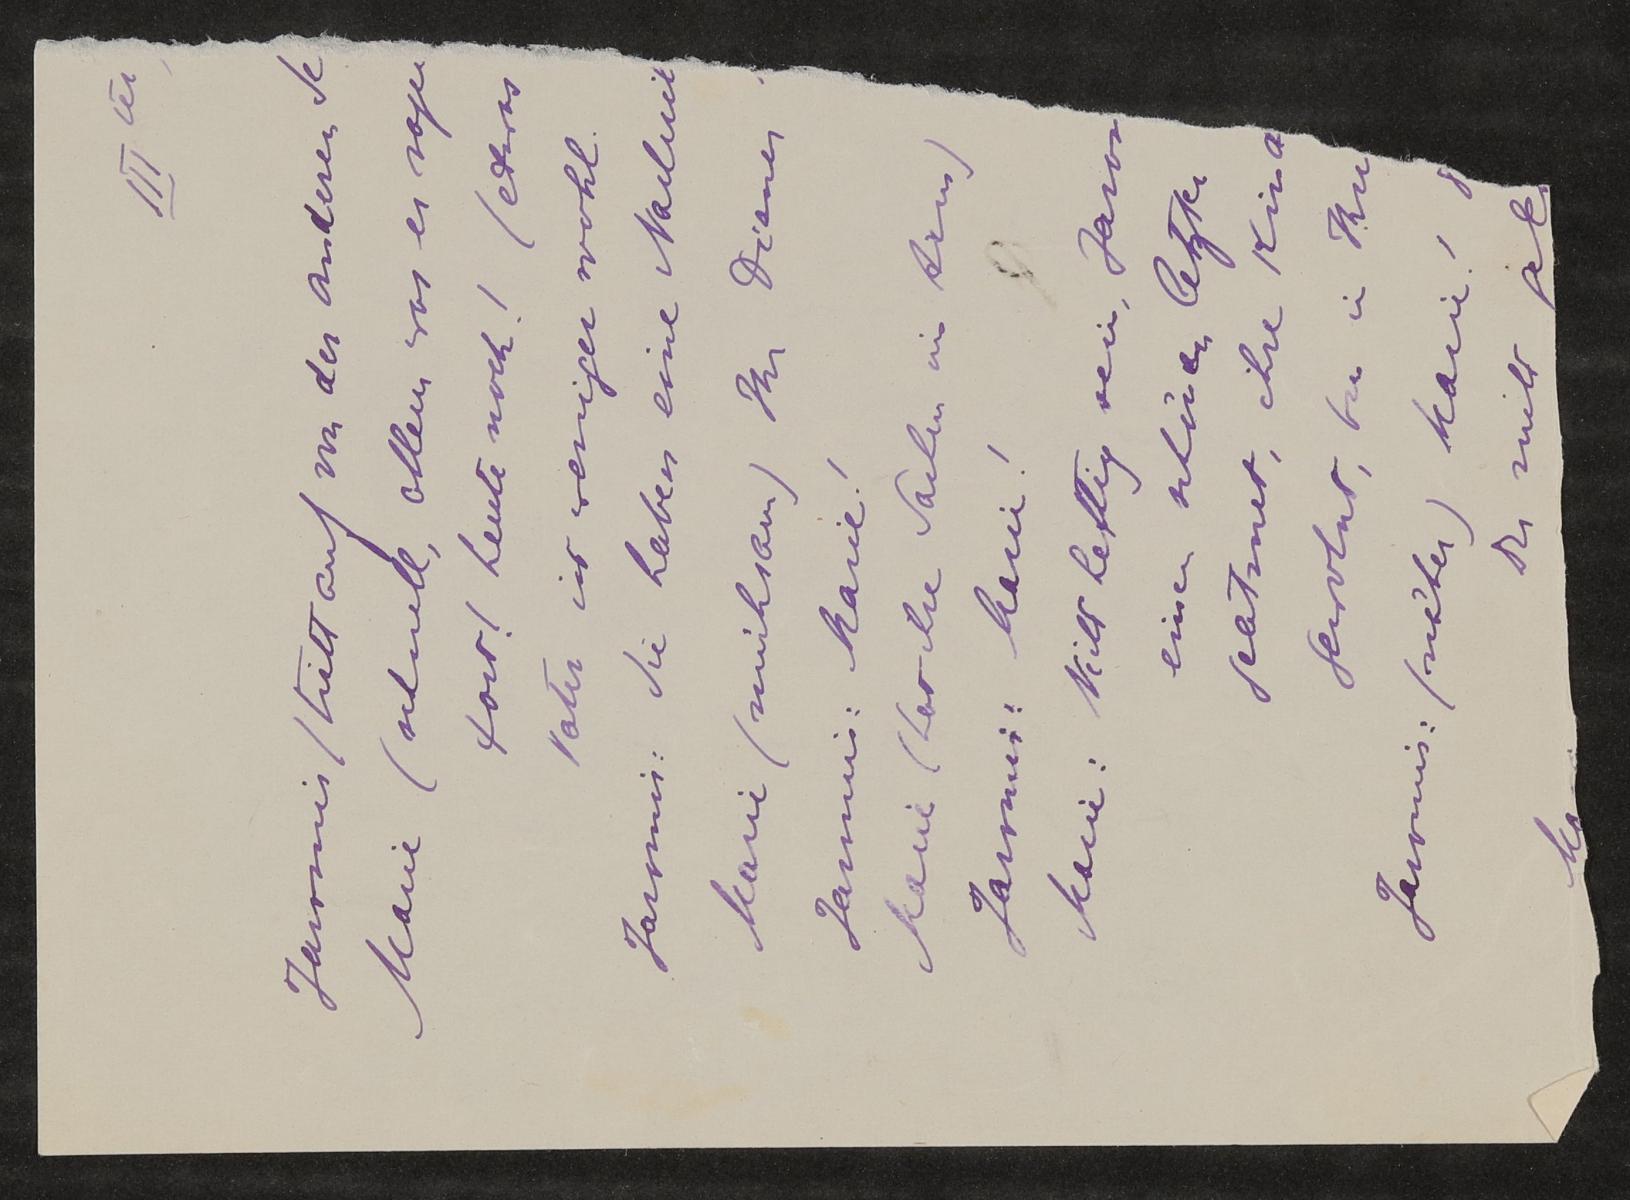 III ter
Jaromir (tritt auf von der anderen Se
Marie (schnell, allem was er sagen
fort! heute noch! (etwas
Vater ist weniger wohl.
Jaromir: Sie haben eine Nachricht
Marie (mühsam) Ihr Diener
Jaromir: Marie!
Marie (hat ihre Sachen im Arm)
Jaromir: Marie!
Marie: Nicht heftig sein, Jarom
einen schönen letzten
geatmet, ihre Kind
gewohnt, bin in Ihre
Jaromir: (näher) Marie!
nicht
Ma